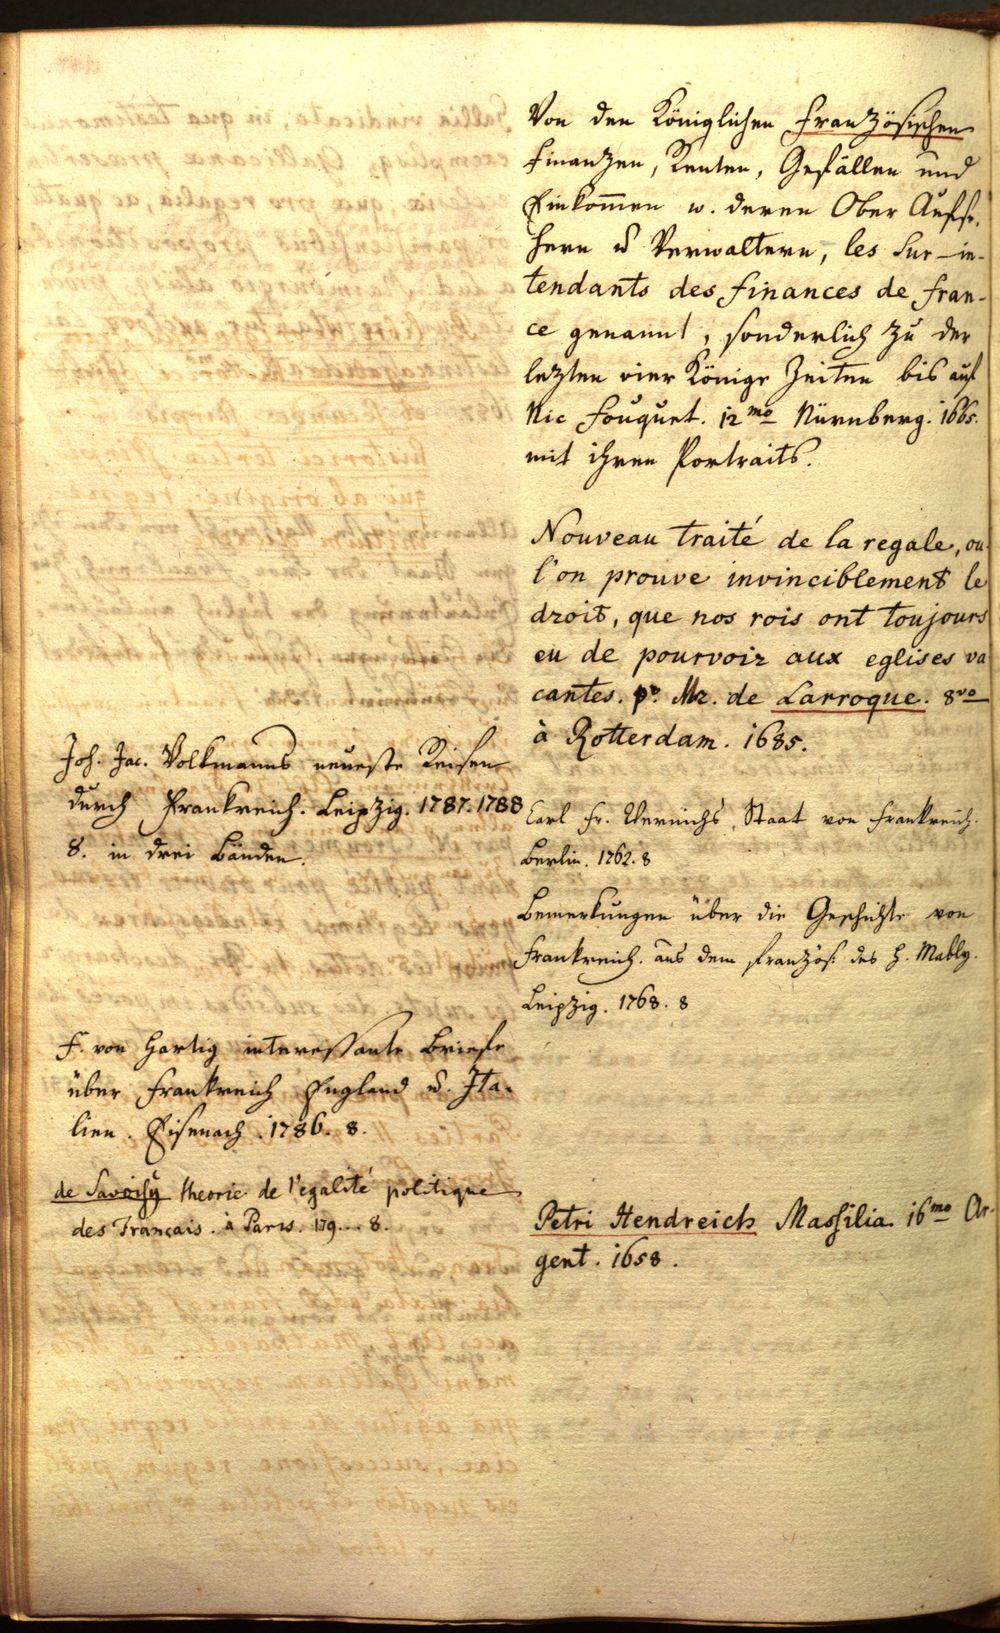 Joh. Jac. Volkmanns neueste Reisen
durch Frankreich. Leipzig. 1787. 1788
8. in drei Bänden.
F. von Hartig interessante Briefe
über Frankreich England u. Ita-
lien. Eisenach. 1786. 8.
de Savoisy theorie de l'egalité politique
des Français. à Paris. 179... 8.
Von den Königlichen Französischen
Finantzen, Renten, Gefällen und
Einkom̄en u. deren Ober Aufse-
hern u Verwaltern, les Sur-in-
tendants des finances de fran-
ce genannt, sonderlich zu der
letzten vier Könige Zeiten bis auf
Nic Fouquet. 12mo Nürnberg. 1665.
mit ihren Portraits.
Nouveau traité de la regale, ou
l'on prouve invinciblement le
droit, que nos rois ont toujours
eu de pourvoir aux eglises va
cantes. p. Mr. de Larroque. 8vo
à Rotterdam. 1685.
Carl Fr. Staat von Frankreich.
Berlin. 1762. 8
Bemerkungen über die Geschichte von
Frankreich. aus dem französ. des H. Mably.
Leipzig. 1768. 8
Petri Hendreich Massilia 16mo Ar-
gent. 1658.